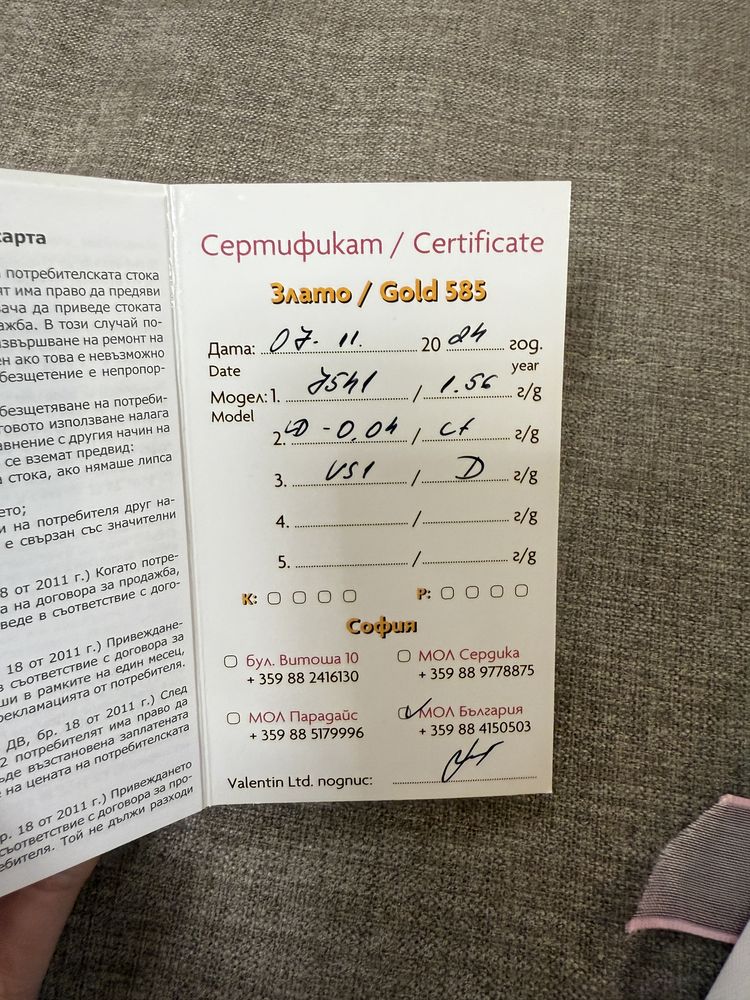 карта
потребителската стока
ят има право да предяви
вача да приведе стоката
ажба. В този случай по-
извършване на ремонт на
ен ако това е невъзможно
безщетение е непропор-
безщетяване на потреби-
говото използване налага
авнение с другия начин на
се вземат предвид:
стока, ако нямаше липса
ето;
и на потребителя друг на-
е свързан със значителни
8 от 2011 г.) Когато потре-
на договора за продажба,
веде в съответствие с дого-
18 от 2011 г.) Привеждане-
съответствие с договора за
ши в рамките на един месец,
рекламацията от потребителя.
ДВ, бр. 18 от 2011 г.) След
2 потребителят има право да
ъде възстановена заплатената
на цената на потребителската
р. 18 от 2011 г.) Привеждането
съответствие с договора за про-
ебителя. Той не дължи разходи
Сертификат / Certificate
Злато / Gold 585
Дата: 07. 11. 20 24 год.
Date year
Модел: 1. 7541 / 1.56 г/g
Model
2. LD - 0,04 / ct г/g
3. VS1 / D г/g
4. / г/g
5. / г/g
К: Р:
София
бул. Витоша 10
+ 359 88 2416130
МОЛ Сердика
+ 359 88 9778875
МОЛ Парадайс
+ 359 88 5179996
МОЛ България
+ 359 88 4150503
Valentin Ltd. подпис: